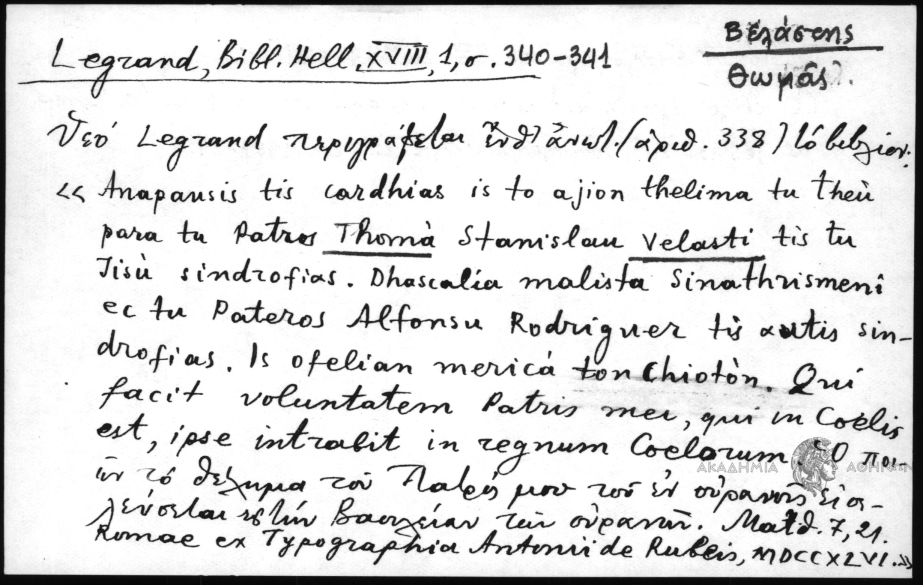 Βελάστης
Θωμᾶς.
Legrand, Bibl. Hell., XVIII, 1, σ. 340-341
Ὑπό Legrand περιγράφεται ἔνθ' ἀνωτ. (ἀριθ. 338) τό βιβλίον:
«Anapausis tis cardhias is to ajion thelima tu theù
para tu Patros Thomà Stanislau Velasti tis tu
Jisù sindrofias. Dhascalía malista Sinathrismeni
ec tu Pateros Alfonsu Rodriguer tis autis sin-
drofias. Is ofelian mericá ton Chiotòn. Qui
facit voluntatem Patris mei, qui in Coelis
est, ipse intrabit in regnum Coelorum. Ὁ ποι-
ῶν τό θέλημα τοῦ Πατρός μου τοῦ ἐν οὐρανοῖς εἰσε-
λεύσεται εἰς τήν Βασιλείαν τῶν οὐρανῶν. Ματθ. 7, 21.
Romae ex Typographia Antonii de Rubeis, MDCCXLVI.»
ΑΚΑΔΗΜΙΑ ΑΘΗΝΩΝ